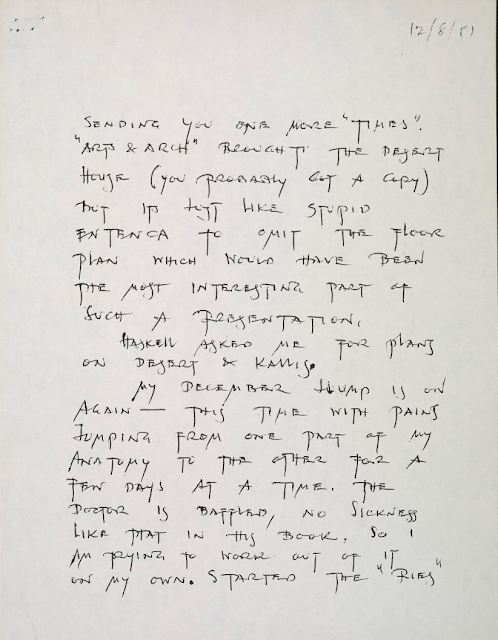 12/8/51
SENDING YOU ONE MORE "TIMES".
"ARTS & ARCH" BROUGHT THE DESERT
HOUSE (YOU PROBABLY GOT A COPY)
BUT IT'S JUST LIKE STUPID
ENTENZA TO OMIT THE FLOOR
PLAN WHICH WOULD HAVE BEEN
THE MOST INTERESTING PART OF
SUCH A PRESENTATION.
HASKELL ASKED ME FOR PLANS
ON DESERT & KALLIS.
MY DECEMBER SLUMP IS ON
AGAIN — THIS TIME WITH PAINS
JUMPING FROM ONE PART OF MY
ANATOMY TO THE OTHER FOR A
FEW DAYS AT A TIME. THE
DOCTOR IS BAFFLED, NO SICKNESS
LIKE THAT IN HIS BOOK. SO I
AM TRYING TO WORK OUT OF IT
ON MY OWN. STARTED THE "RIES"